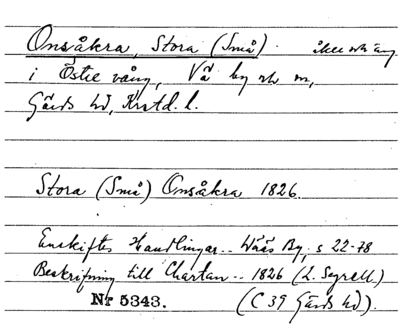 Onsåkra, Stora (Små) . åker och äng
i Östre vång, Vä by och sn,
Gärds hd, Krstd. l.
Stora (Små) Onsåkra 1826.
Enskiftes Handlingar.. Wäås By, s 22-78
Beskrifning till Chartan .. 1826 (L. Segrell.)
Nr 5343. (C 39 Gärds hd).